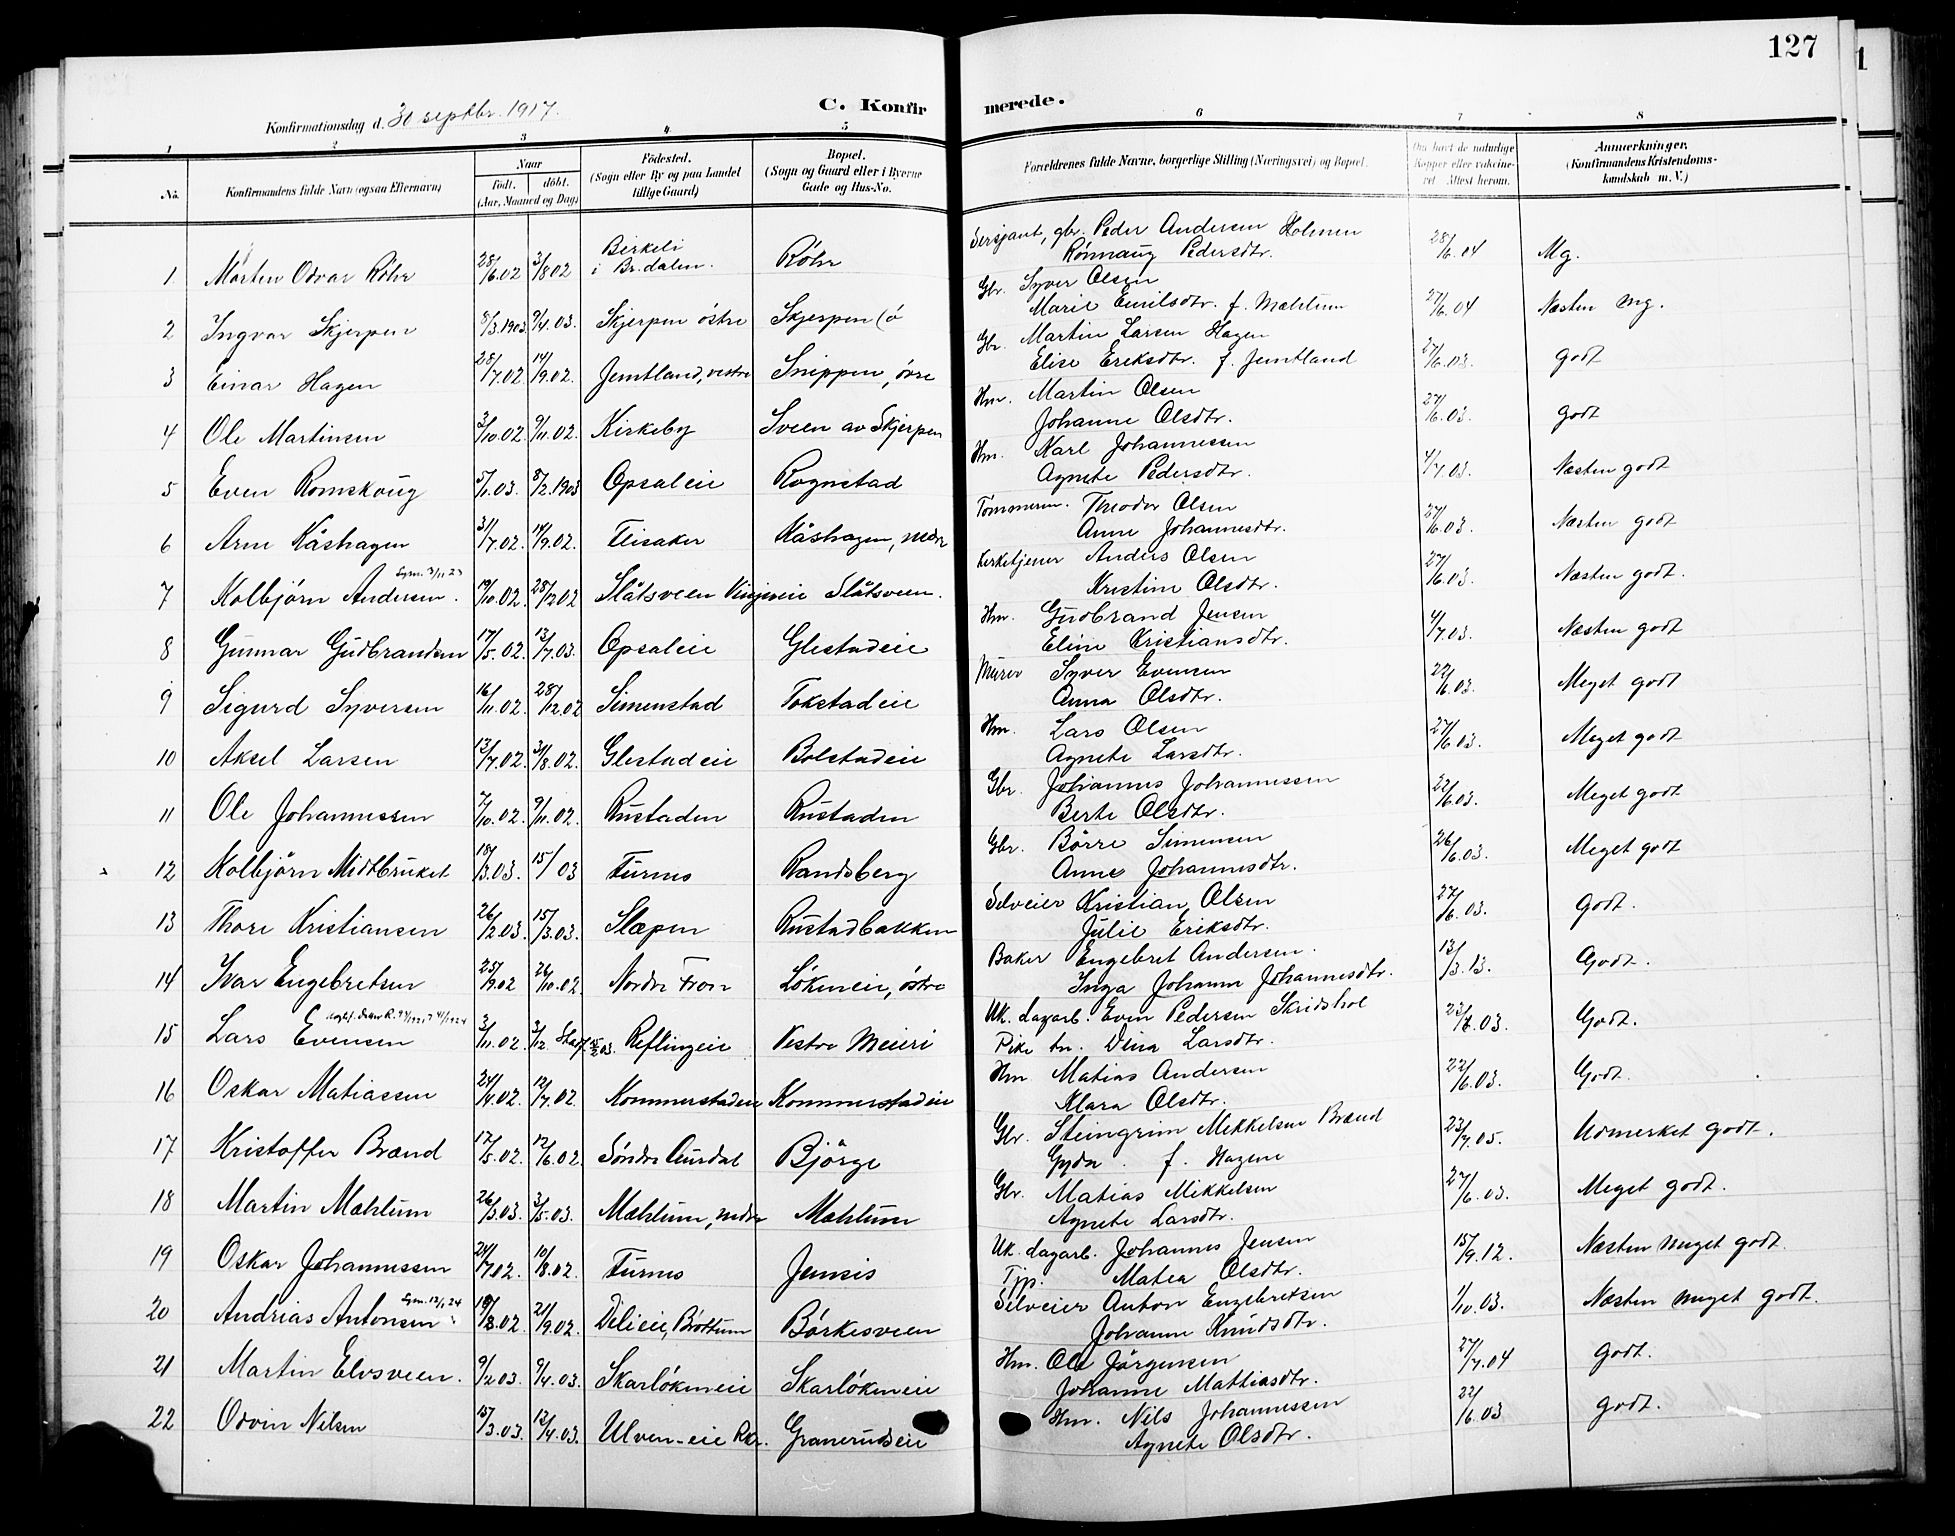 127
1
C. Konfirmerede.
Konfirmationsdag d. 30 septbr. 1917.
1 2 3 4 5 6 7 8
No.
Konfirmandens fulde Navn (ogsaa Efternavn)
Naar
födt. döbt.
(Aar, Maaned og Dag)
Födested.
(Sogn eller By og paa Landet
tillige Gaard)
Bopæl.
(Sogn og Gaard eller i Byerne
Gade og Hus-No.
Forældrenes fulde Navne, borgerlige Stilling (Næringsvei) og Bopæl.
Om havt de naturlige
Kopper eller vaccineret. Attest herom.
Anmærkninger.
(Konfirmandens Kristendoms-
kundskab m. V.)
1 Mårten Odvar Röhr 28/6.02 3/8 02 Birkeli i Br.dalen. Röhr Sersjant, gbr. Peder Andersen Holmen 28/6.04 Mg.
Rønnaug Pedersdtr.
2 Ingvar Skjerpen 8/3.1903 9/4.03. Skjerpen östre Skjerpen (ö Gbr. Syver Olsen 27/6.04 Næsten mg.
Marie Emilsdtr. f. Mæhlum
3 Einar Hagen 28/7.02 14/9.02. Jemtland, vestre Snippen, övre Gbr. Martin Larsen Hagen 27/6.03. godt
Elise Eriksdtr. f. Jemtland
4 Ole Martinsen 3/10.02 9/11.02. Kirkeby Sveen av Skjerpen Hm. Martin Olsen 27/6.03. godt
Johanne Olsdtr.
5 Even Romskoug 5/1.03. 8/2.1903 Opsaleie Rognstad Hm. Karl Johannessen 4/7.03. Næsten godt
Agnete Pedersdtr.
6 Arne Kåshagen 31/7.02. 14/9.02. Flisaker Kåshagen, nedre Tömmerm. Theodor Olsen 27/6.03. Næsten godt
Anne Johannesdtr.
7 Kolbjörn Andersen. 19/10.02. 28/12 02 Slåtsveen Vingneie Slåtsveen. Kirketjener Anders Olsen 27/6.03. Næsten godt.
Kristine Olsdtr.
8 Gunnar Gudbrandsen 17/5.02. 13/7.03. Opsaleie Glestadeie Hm. Gudbrand Jensen 4/7.03. Næsten godt
Eline Kristiansdtr.
9 Sigurd Syversen 16/11.02. 28/12.02 Simenstad Tokstadeie Murer Syver Evensen 22/6.03. Meget godt
Anna Olsdtr.
10 Aksel Larsen 13/7.02. 31/8.02. Glestadeie Bolstadeie Hm. Lars Olsen 27/6.03. Meget godt
Agnete Larsdtr.
11 Ole Johannessen 7/10.02. 9/11.02. Rustaden Rustaden Gbr. Johannes Johannessen 22/6.03. Meget godt
Berte Olsdtr.
12 Kolbjörn Midtbruket 18/3.03. 15/ 03 Furnes Randsberg Gbr. Börre Simensen 26/6.03. Meget godt
Anne Johannesdtr.
13 Thore Kristiansen 26/2.03. 15/3.03. Slæpen Rustadbakken Selveier Kristian Olsen 27/6.03. Godt.
Julie Eriksdtr.
14 Ivar Engebretsen 25/9.02 26/10.02. Nordre Fron Lökneeie, östre Baker Engebret Andersen. 13/3.13. Godt.
Inga Johanne Johannesdtr.
15 Lars Evensen 3/11.02. Reflingeie Vestre Meieri Uk. dagarb. Even Pedersen Skridshol Godt.
Pike tn. Dina Larsdtr.
16 Oskar Matiassen 24/4.02. 12/7.02. Kommerstadeie Kommerstadeie Hm Matias Andersen 22/6.03. Godt.
Klara Olsdtr.
17 Kristoffer Brænd 17/5.02. 17/6.02. Söndre Aurdal Björge Gbr. Steingrim Mikkelsen Brænd 23/7.05. Udmerket godt.
Gyda . f. Hagene
18 Martin Mæhlum 26/3.03. 3/5.03. Mæhlum, nedre Mæhlum Gbr. Matias Mikkelsen 27/6.03. Meget godt.
Agnete Larsdtr.
19 Oskar Johannessen 24/7.02. 10/8.02. Furnes Jensis Uk. dagarb. Johannes Jensen 15/9.12. Næsten meget godt.
Tjp. Matea Olsdtr.
20 Andrias Antonsen 19/8.02. 21/9.02. Delieie, Bröttum Börkesveen Selveier Anton Engebretsen 1/10.03. Næsten meget godt.
Johanne Knudsdtr.
21 Martin Elvsveen. 9/2 03. 9/4.03. Skarlökneeie Skarlökneeie Hm. Ole Jörgensen 27/7.04 godt.
Johanne Mattiasdtr.
22 Odvin Nilsen 15/3.03. 13/4.03. Ulven-eie Rkr. Granerudseie Hm. Nils Johannessen 22/6.03 godt.
Agnete Olsdtr.